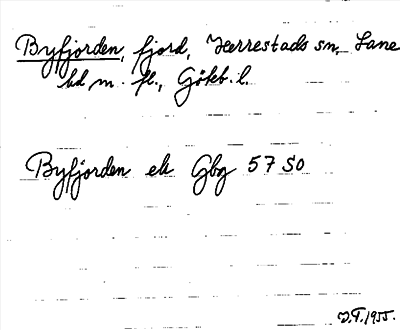 Byfjorden, fjord, Herrestads sn, Lane
hd m. fl., Göteb. l.
Byfjorden ek Gbg 57 SO
1955.